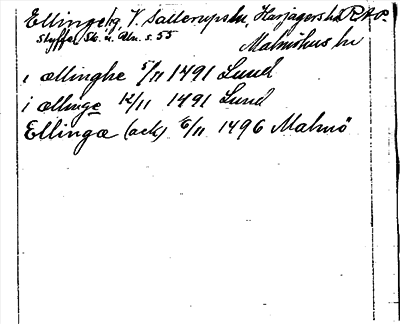 Ellinge bg, V. Sallerups sn, Harjagers hd RAP.
Styffe, Sk. u. Un. s. 55
Malmöhus ln
i ællinghe 5/11 1491 Lund
i ællinge 12/11 1491 Lund
Ellingæ (ack) 6/11 1496 Malmö